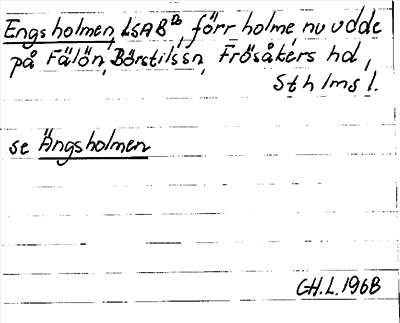 Engsholmen, LSAB Do, förr holme, nu udde
på Fälön, Börstils sn, Frösåkers hd,
Sthlms l.
se Ängsholmen
CH.L. 1968